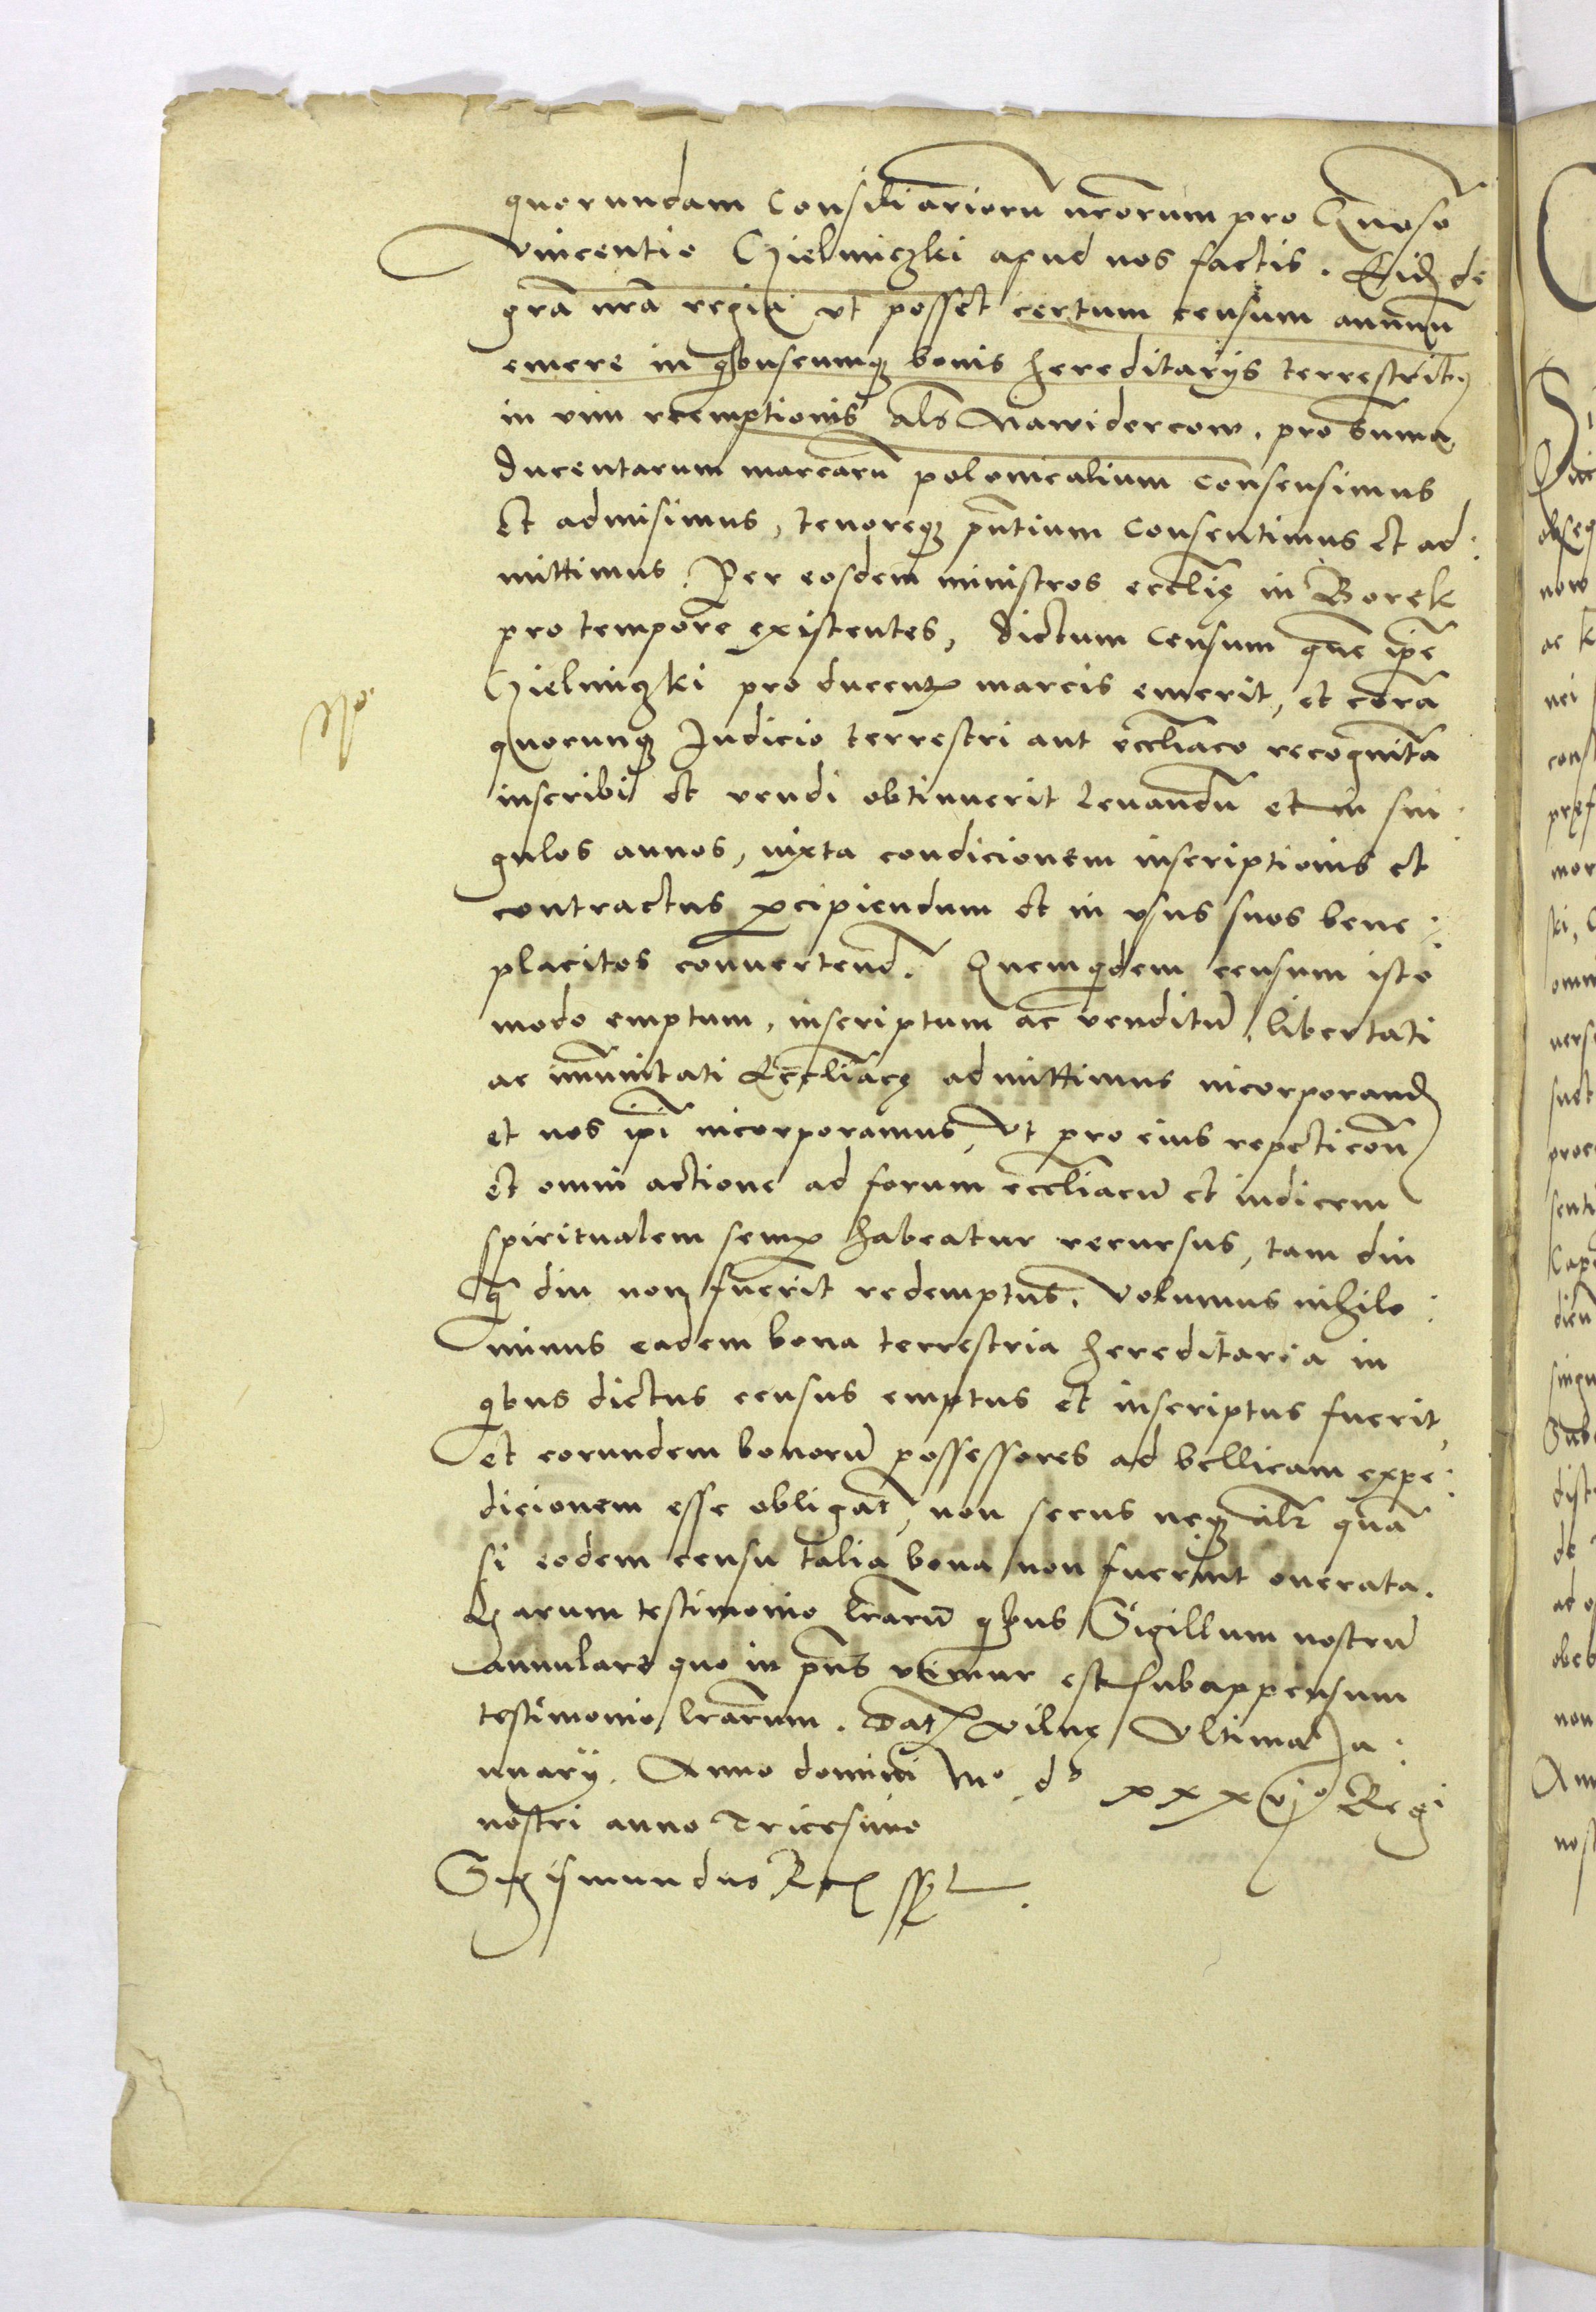 quorundam Consiliarioru nrorum pro Gnoso
Vincentio Chielmiczki apud nos factis. Eid de
gra nra regia vt posset certum censum annuu
emere in qbuscumq bonis hereditarys terrestrib
in vim reemptionis als Nawidercow. pro Suma
Ducentarum marcaru polonicalium Consensimus
Et admisimus, tenoreq pntium Consentimus et ad:
mittimus. Per eosdem ministros ecclie in Borek
pro tempore existentes, Dictum Censum que ipe
Chielmiczki pro ducent marcis emerit, et cora
quocunq Judicio terrestri aut eccliaco recognita
inscribi et vendi obtinuerit Levandu et in sin:
gulos annos, iuxta condicionem inscriptionis et
contractus pcipiendum et in vsus suos bene:
placitos convertend. Quemqdem censum isto
modo emptum, inscriptum ac venditu, libertati
ac imunitati Eccliace admittimus incorporand
et nos ipi incorporamus, Vt pro eius repeticon
et omni actione ad forum eccliacu et iudicem
spiritualem semp habeatur recursus, tam diu
q diu non fuerit redemptus. Volumus nihilo:
minus eadem bona terrestria hereditaria in
qbus dictus census emptus et inscriptus fuerit,
et eorundem bonoru possessores ad bellicam expe:
dicionem esse obligat, non secus neq alr qua
si eodem censu talia bona non fuerint onerata.
Harum testimonio lraru qbus Sigillum nostru
annulare quo in pns vtimur est subappensum
testimonio lrarum. Dat Vilne Vltima Ja:
nuary. Anno domini Mo do xxxvjo Regi
nostri anno Tricesimo
Sigismundus Rex sst